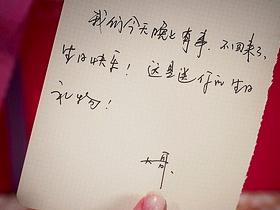 我们今天晚上有事，不回来了，
生日快乐！这是送你的生日
礼物！
大哥